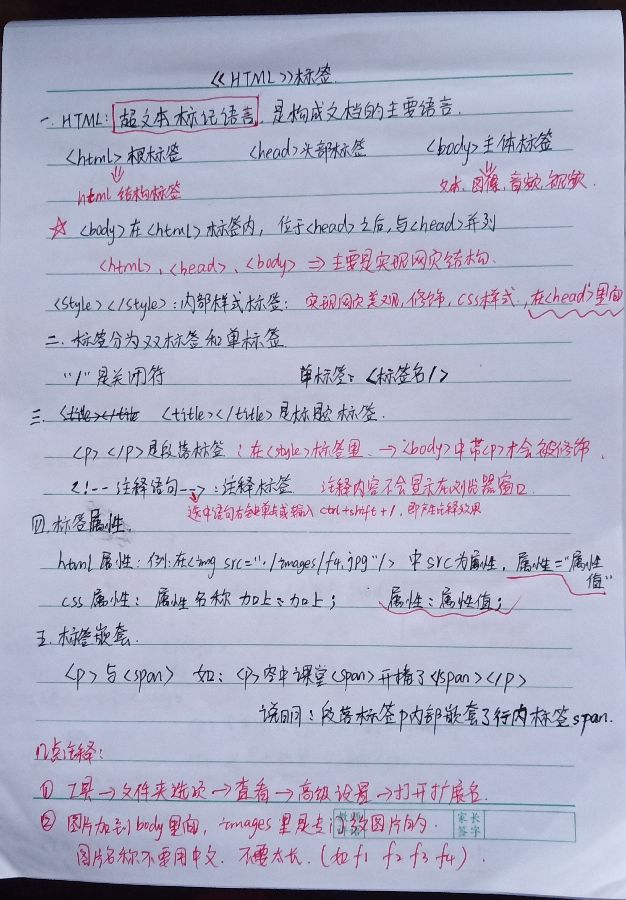 《《HTML》》标签.
一. HTML: 超文本标记语言. 是构成文档的主要语言.
<html> 根标签 <head> 头部标签 <body> 主体标签
html 结构标签 文本、图像、音频、视频.
☆ <body> 在 <html> 标签内, 位于<head>之后,与<head>并列
<html>、<head>、<body> ⇒ 主要是实现网页结构.
<style></style>: 内部样式标签: 实现网页美观,修饰, css样式., 在<head>里面
二. 标签分为双标签和单标签.
"/" 是关闭符 单标签: <标签名/>
三. <title></title> 是标题标签.
<p> </p> 是段落标签; 在<style>标签里. → <body>中带<p>才会被修饰.
<!-- 注释语句-->: 注释标签. 注释内容不会显示在浏览器窗口.
选中语句右键单击或输入 ctrl+shift+/, 即产生注释效果
四. 标签属性.
html 属性: 例: 在<img src="./images/f4.jpg"/> 中 src为属性, 属性="属性值"
css 属性: 属性名称 加上: 加上; 属性: 属性值;
五. 标签嵌套.
<p> 与 <span> 如: <p>空中课堂<span>开播了</span></p>
说明: 段落标签p内部嵌套了行内标签span.
几点注释:
① 工具→文件夹选项→查看→高级设置→打开扩展名.
② 图片加到body里面, images里是专门放图片的. 家长签字
图片名称不要用中文. 不要太长. (如 f1 f2 f3 f4).